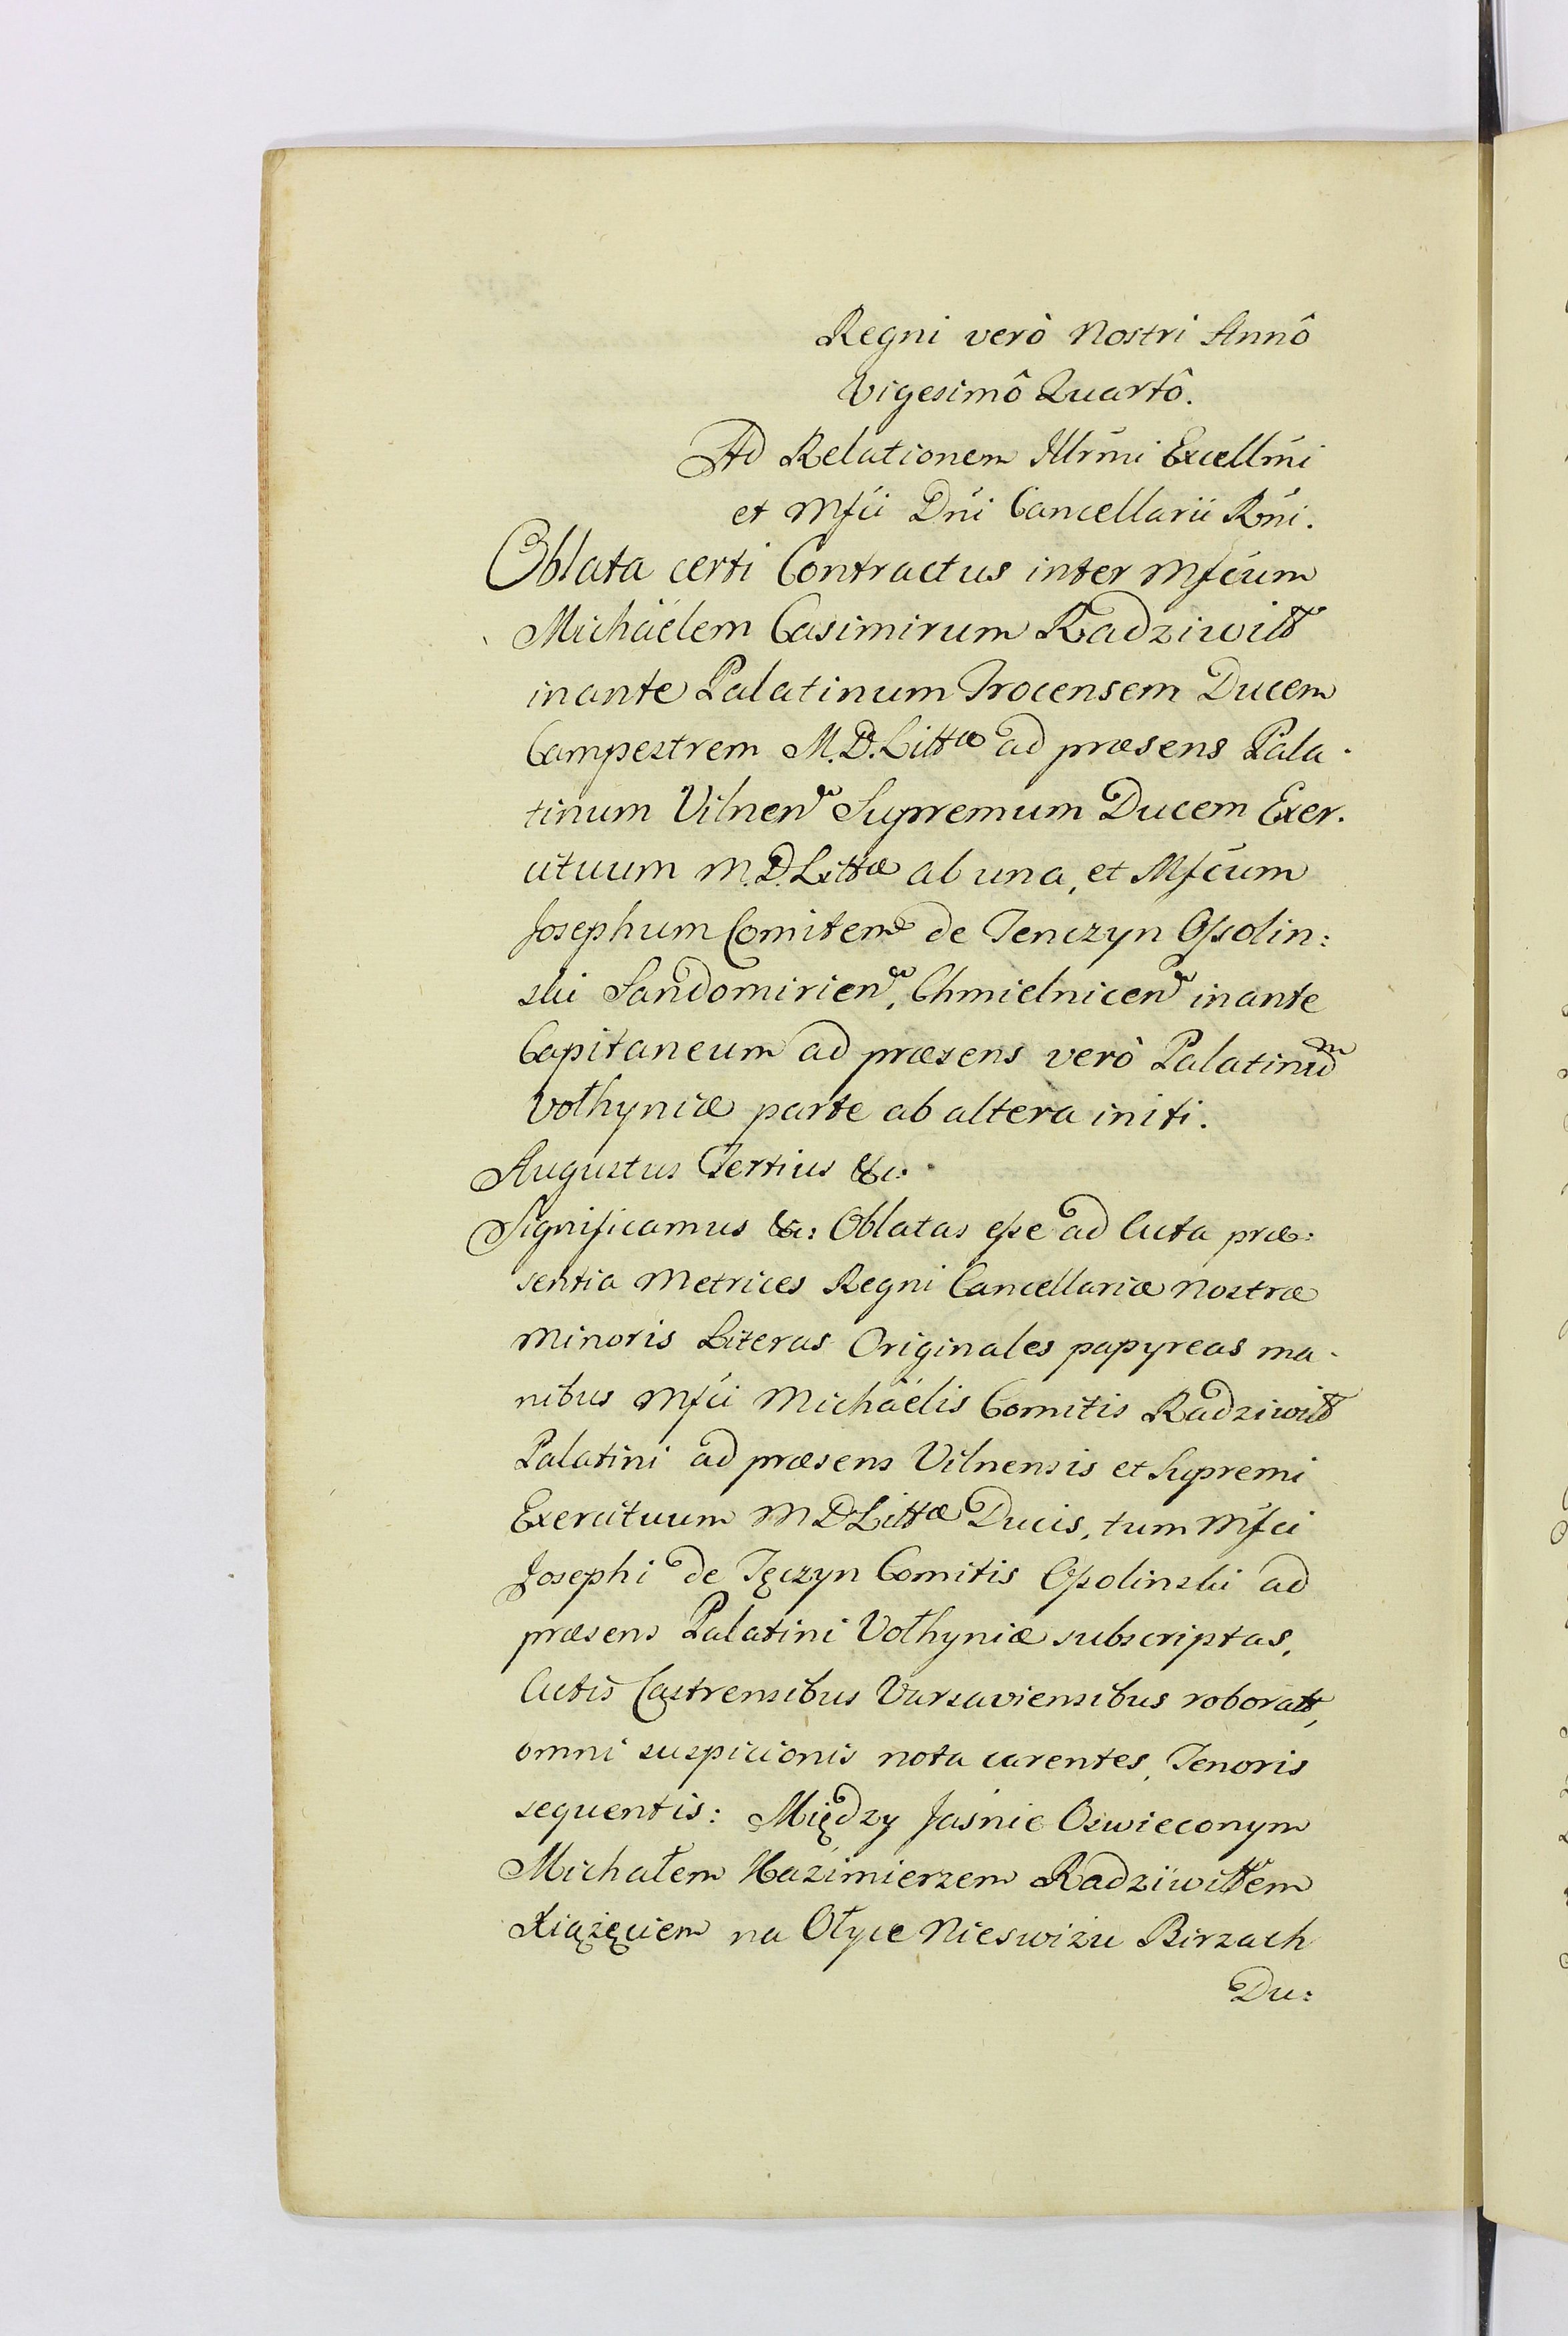 Regni verò Nostri Annô
Vigesimô Quartô.
Ad Relationem Illrmi Excellmi
et Mfci Dni Cancellarii Rni.
Oblata certi Contractus inter Mfcum
Michäelem Casimirum Radziwiłł
inante Palatinum Trocensem Ducem
Campestrem M.D.Littæ ad præsens Pala-
tinum Vilnen Supremum Ducem Exer-
cituum M.D.Littæ ab una, et Mfcum
Josephum Comitem de Tenczyn Ossolin:
ski Sandomirien, Chmielnicen inante
Capitaneum ad præsens verò Palatinum
Vołhyniæ parte ab altera initi.
Augustus Tertius &c:
Significamus &c: Oblatas esse ad Acta præ:
sentia Metrices Regni Cancellariæ Nostræ
Minoris Literas Originales papyreas ma-
nibus Mfci Michäelis Comitis Radziwiłł
Palatini ad præsens Vilnensis et Supremi
Exercituum M D Littæ Ducis, tum Mfci
Josephi de Tęczyn Comitis Ossolinski ad
præsens Palatini Vołhyniæ subscriptas,
Actis Castrensibus Varsaviensibus roboratt,
omni suspicionis nota carentes, Tenoris
sequentis: Między Jaśnie Oswieconym
Michałem Kaźimierzem Radziwiłłem
Xiążęciem na Ołyce Nieswiżu Birzach
Du: